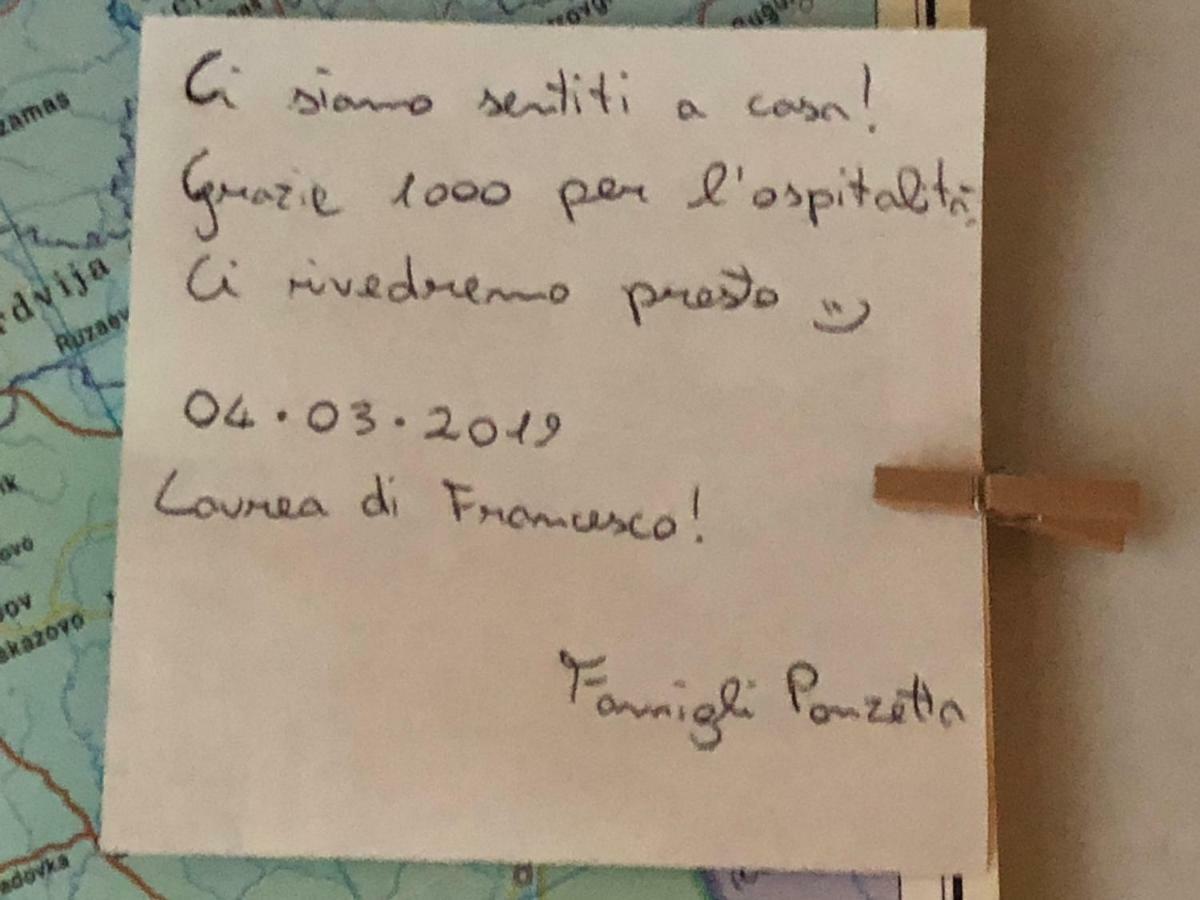 Ci siamo sentiti a casa!
Grazie 1000 per l'ospitalità.
Ci rivedremo presto
04.03.2019
Laurea di Francesco!
Famigli Panzetta
zamas
rdvija
Ruzaev
ovo
skazovo
adovka